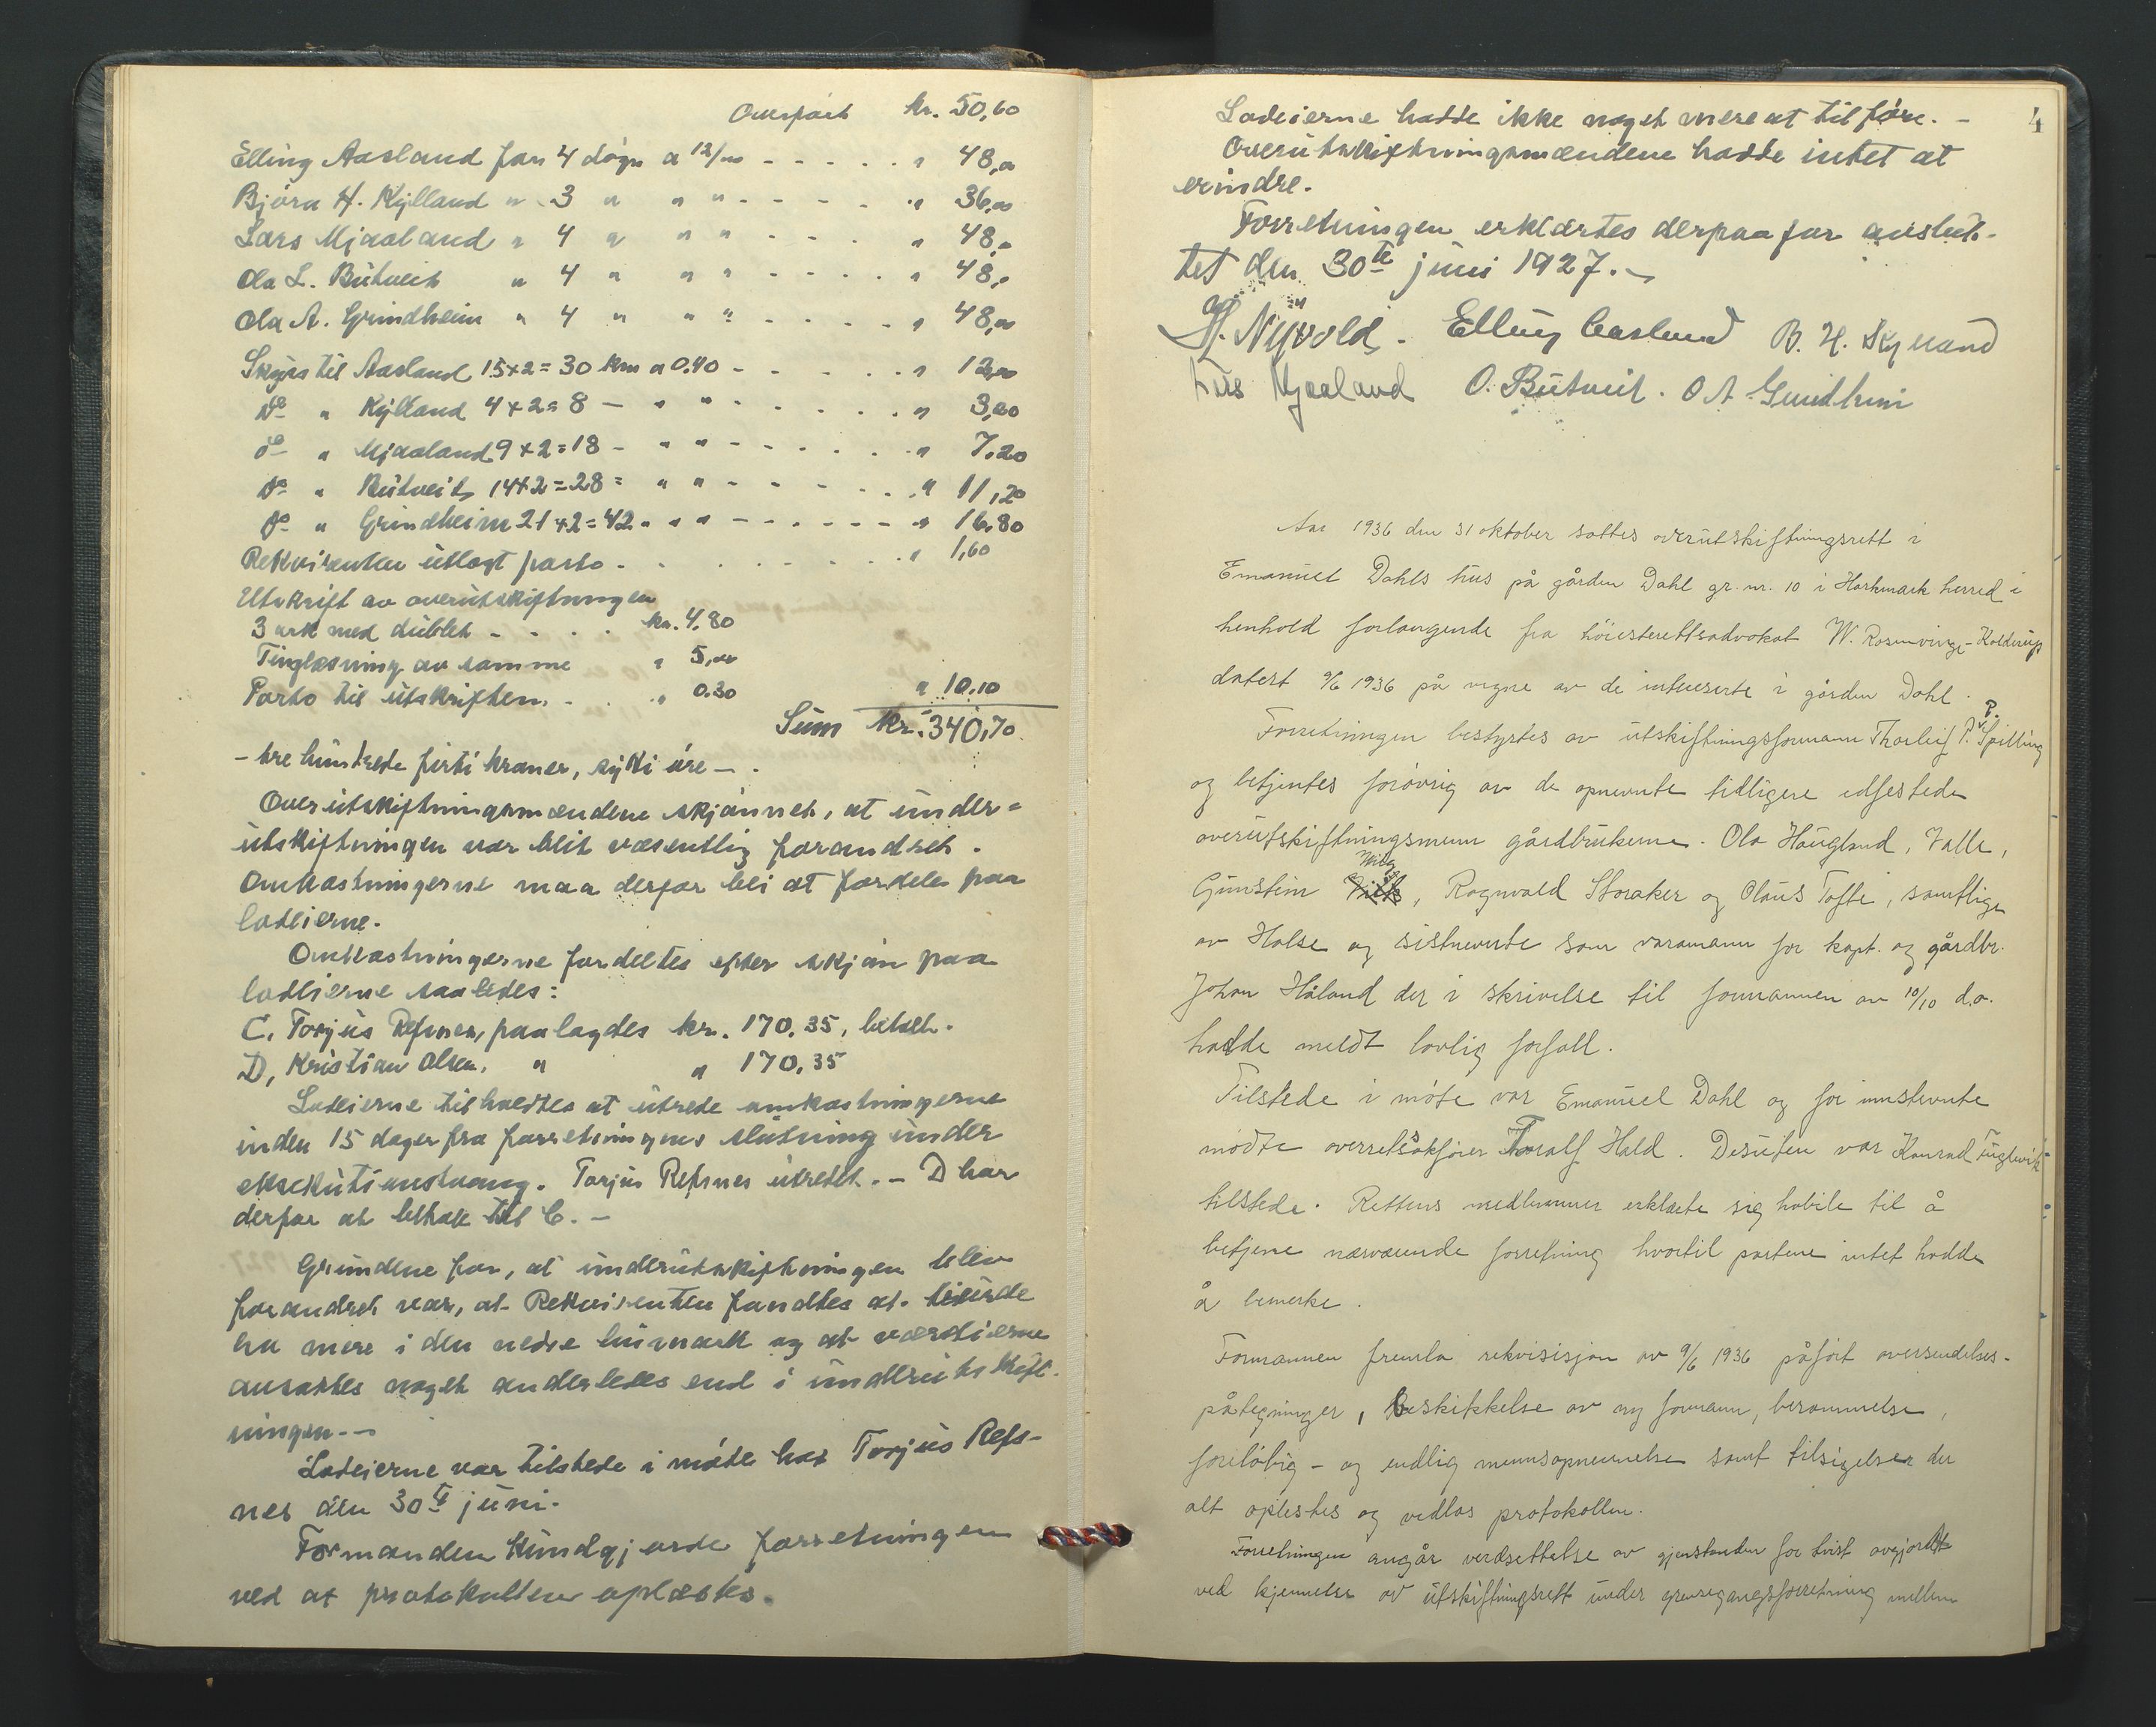 Overført kr. 50,60
Elling Aasland for 4 døgn a 12/00 - - - - - " 48,00
Bjørn H. Kylland " 3 " " " - - - - - " 36,00
Lars Mjaaland " 4 " " " - - - " 48,-
Ola L. Butveit " 4 " " " - - - - " 48,-
Ola A. Grindheim " 4 " " " - - - - - " 48,00
Skyss til Aasland 15x2=30 km a 0.40 - - - - - " 12,00
do " Kylland 4x2=8 - " " - - - - - " 3,20
do " Mjaaland 9x2=18 - " " - - - - - " 7.20
do " Butveit 14x2=28 = " " - - - - - " 11,20
do " Grindheim 21x2=42 " " " - - - - - - " 16.80
Rekvirenten utlagt porto - - - - - - - " 1,60
Utskrift av overutskiftningen
3 ark med dublet - - - - kr. 4.80
Tinglæsning av samme " 5,00
Porto til utskriften. - - " 0.30 " 10.10
Sum kr. 340,70
- tre hundrede førti kroner, sytti øre - .
Overutskiftningsmændene skjønnet, at under-
utskiftningen var blit væsentlig forandret.
Omkostningerne maa derfor bli at fordele paa
lodeierne.
Omkostningerne fordeltes efter skjøn paa
lodeierne saaledes:
C. Torjus Refsnes, paalagdes kr. 170.35, betalt.
D, Kristian Olsen, " " 170.35
Lodeierne tilholdtes at utrede omkostningerne
inden 15 dager fra forretningens slutning under
eksekutionstvang. Torjus Refsnes utredet. - D har
derfor at betale til C. -
Grundene for, at underutskiftningen blev
forandret var, at Rekvirenten fandtes at burde
ha mere i den nedre hiemark og at værdierne
ansattes noget anderledes end i underutskift-
ningen. -
Lodeierne var tilstede i møte hos Torjus Refs-
nes den 30te juni.
Formanden kundgjorde forretningen
ved at protokollen oplæstes.
4
Lodeierne hadde ikke noget mere at tilføre. -
Overutskiftningsmændene hadde intet at
erindre.
Forretningen erklærtes derpaa for avslut-
tet den 30te juni 1927. -
Nývold. Elling Aasland B. H. Kylland
Lars Mjaaland O. Butveit. O A Grindheim
Aar 1936 den 31 oktober sattes overutskiftningsrett i
Emanuel Dahls hus på gården Dahl gr. nr. 10 i Harkmark herred i
henhold forlangende fra höiesterettsadvokat W. Rosenvinge-Kolderup
datert 9/6 1936 på vegne av de interesserte i gården Dahl.
Forretningen bestyrtes av utskiftningsformann Thorleif P. Spilling
og betjentes forøvrig av de opnevnte tidligere edfestede
overutskiftningsmenn gårdbrukerne. Ola Haugland, Valle,
Gunstein, Ragnvald Storaker og Olaus Tofte, samtlige
av Halse og sistnevnte som varamann for kapt. og gårdbr.
Johan Håland der i skrivelse til formannen av 10/10 d.a.
hadde meldt lovlig forfall.
Tilstede i møte var Emanuel Dahl og for innstevnte
mødte overretssakfører Toralf Hald. Desuten var Konrad Fuglevik
tilstede. Rettens medlemmer erklærte sig habile til å
betjene nærværende forretning hvortil partene intet hadde
å bemerke.
Formannen fremla rekvisisjon av 9/6 1936 påført oversendelses-
påtegninger, beskikkelse av ny formann, berammelse,
foreløbig - og endlig mennsopnevnelse samt tilsigelser der
alt oplestes og vedlas protokollen.
Forretningen angår verdsettelse av gjenstanden for tvist avgjordt
ved kjennelse av utskiftningsrett under grensegangsforretning mellem